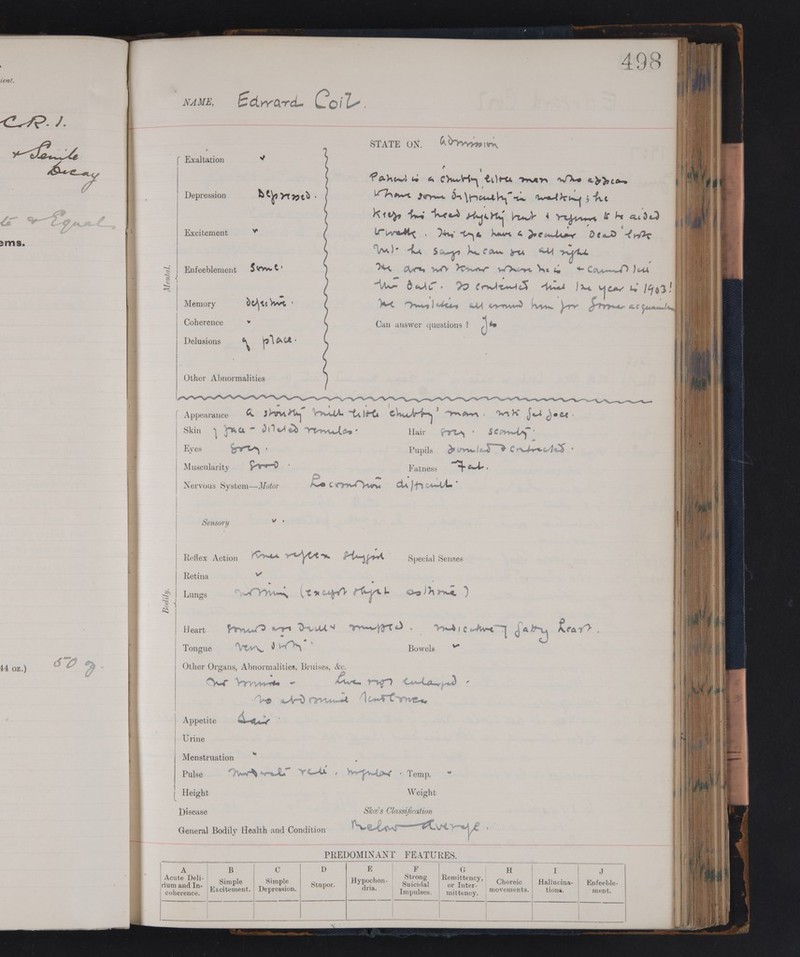 C.R. 1.
+ Senile
Decay
Equal
ems.
44 oz.) 50
498
NAME, Edward Coil
STATE ON. Admission
Exaltation
Depression Depressed.
Excitement
Enfeeblement Some.
Memory Defective.
Coherence
Delusions of place.
Other Abnormalities
Mental.
Patient is a chubby man who appears
to have some difficulty in walking; he
Keeps his head slightly bent & requires to be aided
to walk. His eyes have a peculiar Dead look
but he says he can see all right
He does not know where he is & cannot tell
the Date. Is contented that the year is 1903!
He mistakes all around him for former
Can answer questions ? Yes
Appearance A stoutly built 'chubby' man. with fat face.
Skin of face - Dilated venules. Hair Grey. Scanty.
Eyes Grey. Pupils & Contracted.
Muscularity Good. Fatness Fat.
Nervous System—Motor Locomotion difficult.
Sensory
Reflex Action Knee reflex Sluggish Special Senses
Retina
Lungs normal (except slight asthma)
Bodily.
Heart Sounds are Dull & muffled. Indicative of fatty heart.
Tongue Very dirty. Bowels
Other Organs, Abnormalities, Bruises, &c.
No bruises - Liver not enlarged.
No abdominal tenderness
Appetite Fair
Urine
Menstruation
Pulse Moderate rate. irregular. Temp.
Height Weight
Disease Skae's Classification
General Bodily Health and Condition Below Average.
PREDOMINANT FEATURES.
A B C D E F G H I J
Acute Delirium and Incoherence. Simple Excitement. Simple Depression. Stupor. Hypochondria. Strong Suicidal Impulses. Remittency, or Intermittency. Choreic movements. Hallucinations. Enfeeblement.